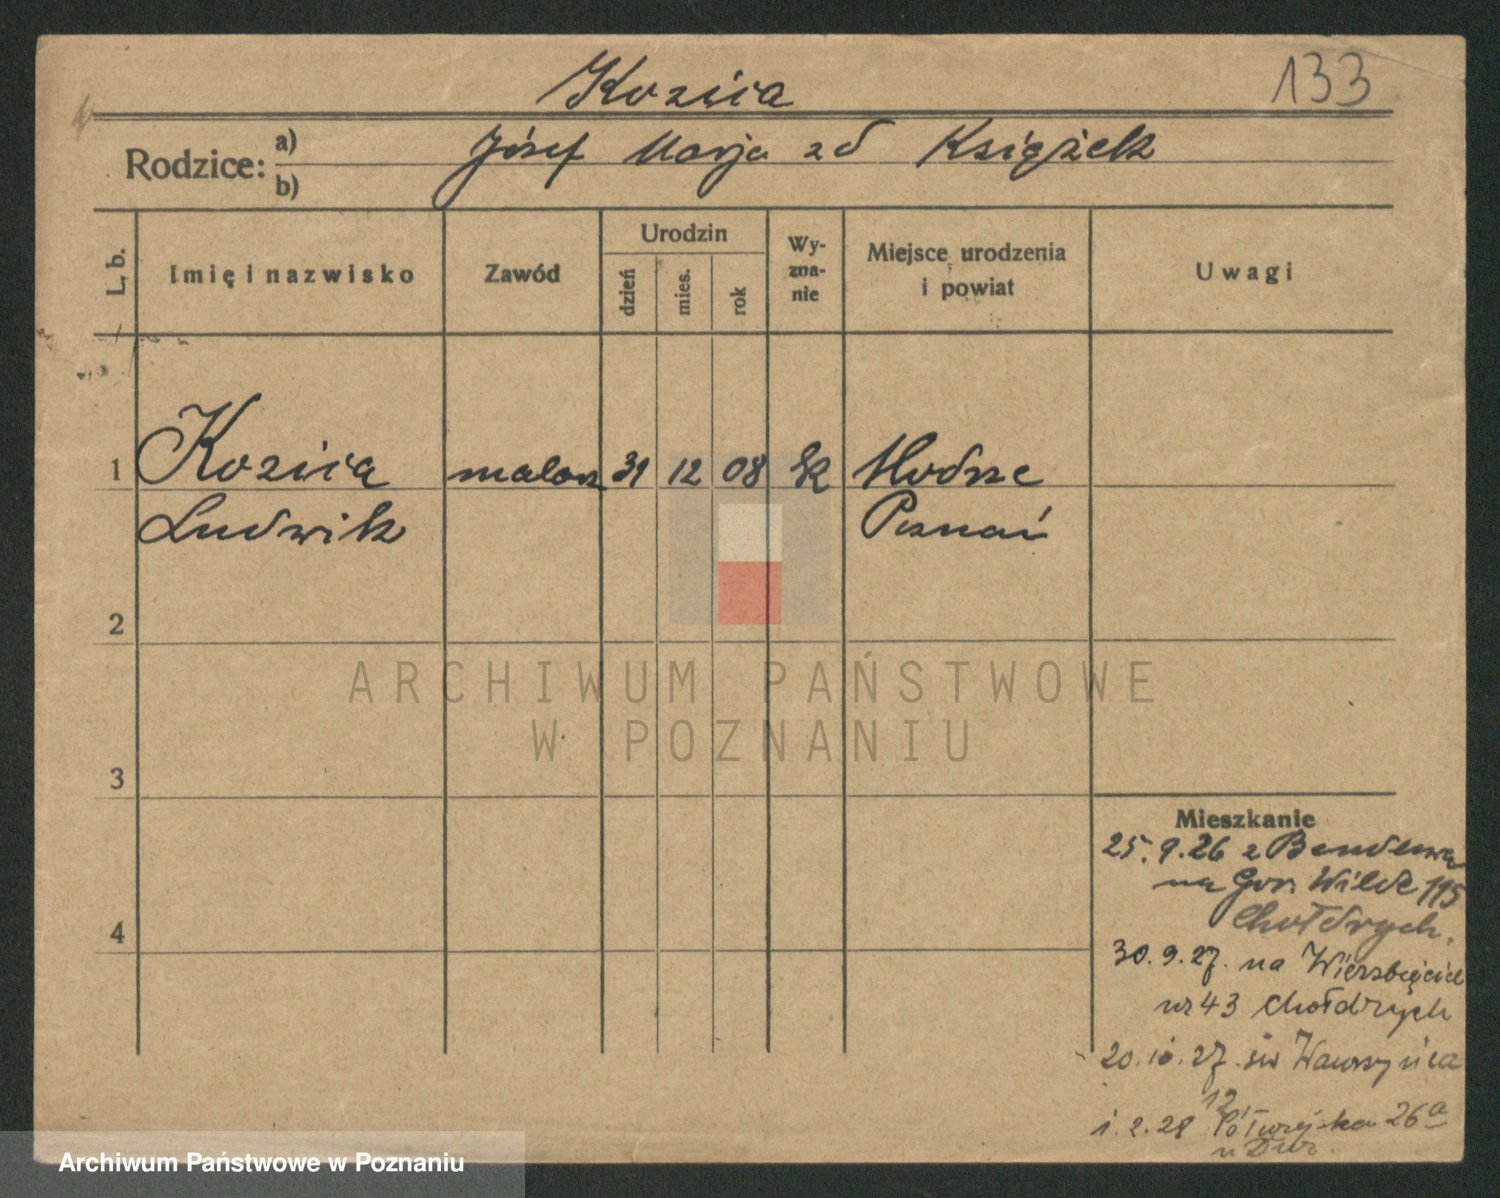 Kozica
133
Rodzice: a) b)
Józef Marja zd Książek
L, b.
Imię i nazwisko
Zawód
Urodzin
dzień
mies.
rok
Wy-
zna-
nie
Miejsce urodzenia
i powiat
Uwagi
1 Kozica malarz 31 12 08 rk Modrze
Ludwik Poznań
2
3
4
Mieszkanie
25.9.26 z Bendlewa
na Gor. Wilde 115
Chołdrych.
30.9.27. na Wierzbięcice
nr 43 Chołdrych
20.10.27. św Wawrzyńca
12
1.2.28 Półwiejska 26a
u
ARCHIWUM PAŃSTWOWE
W POZNANIU
Archiwum Państwowe w Poznaniu